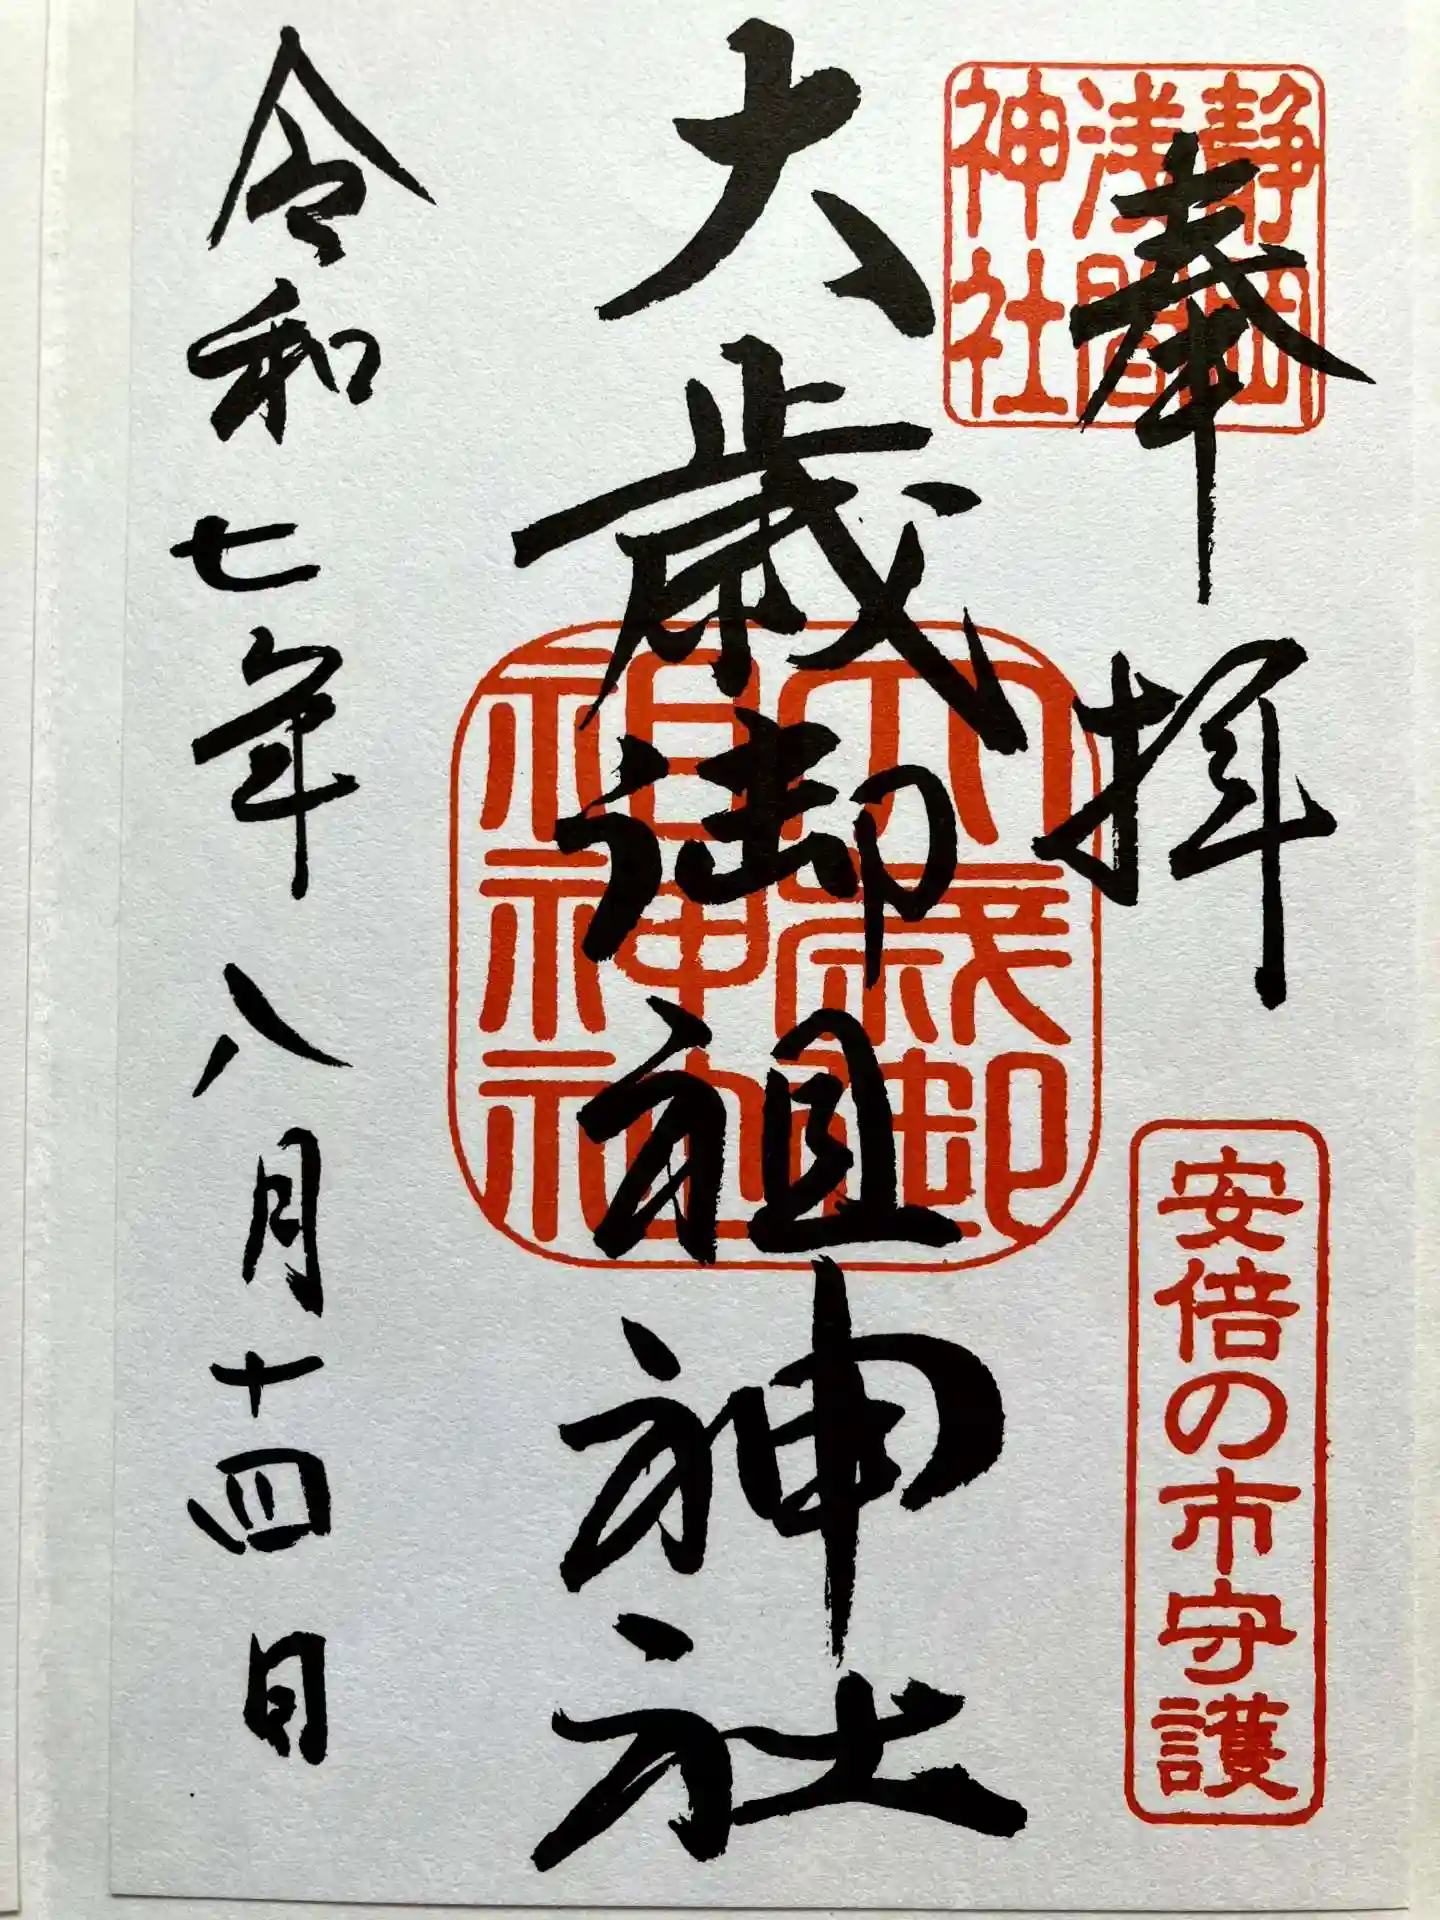 奉拝
静岡
浅間
神社
安倍の市守護
大歳御祖神社
大歳御
祖神社
令和七年八月十四日